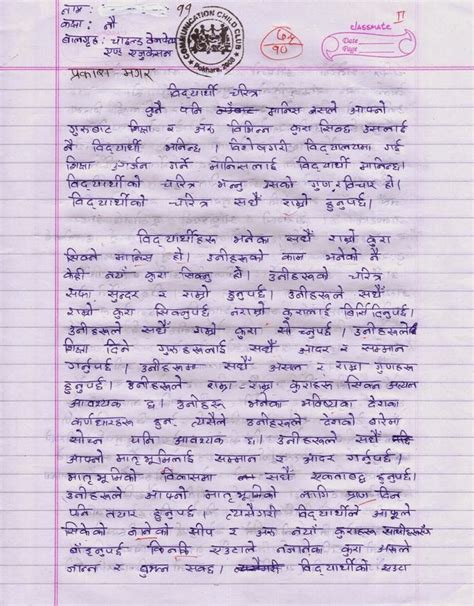 नाम :
99
कक्षा : नौ
बालगृह : चाइल्ड वेलफेयर
एण्ड एजुकेसन
COMMUNICATION CHILD CLUB
Pokhara, 2060
90
classmate
Date
Page
II
प्रकाश मगर
विद्यार्थी चरित्र
कुनै पनि मानिस जसले आफ्नो
गुरुबाट शिक्षा र अरु विभिन्न कुरा सिक्छ उसलाई
नै विद्यार्थी भनिन्छ । विशेषगरी विद्यालयमा गई
शिक्षा आर्जन गर्ने मानिसलाई विद्यार्थी भनिन्छ।
विद्यार्थीको चरित्र भन्नु उसको गुण र विचार हो।
विद्यार्थीको चरित्र सधैँ राम्रो हुनुपर्छ।
विद्यार्थीहरू भनेका सधैँ राम्रो कुरा
सिक्ने मानिस हो। उनीहरूको काम भनेको नै
केही नयाँ कुरा सिक्नु हो। उनीहरूको चरित्र
सफा सुन्दर र राम्रो हुनुपर्छ। उनीहरूले सधैँ
राम्रो कुरा सिक्नुपर्छ। नराम्रो कुरालाई बिर्सिदिनुपर्छ।
उनीहरूले सधैँ राम्रो कुरा सोच्नुपर्छ। उनीहरूले
शिक्षा दिने गुरुहरूलाई सधैँ आदर र सम्मान
गर्नुपर्छ । उनीहरूमा सधैँ असल र राम्रा गुणहरू
हुनुपर्छ। उनीहरूले राम्रा-राम्रा कुराहरू सिक्न अत्यन्त
आवश्यक छ। उनीहरू भनेका भविष्यका देशका
कर्णधारहरू हुन् त्यसैले उनीहरूले देशको बारेमा
सोच्न पनि आवश्यक छ। उनीहरूले सधैँ
आफ्नो मातृभूमिलाई सम्मान र आदर गर्नुपर्छ ।
मातृभूमिको विकासमा सधैँ एकताबद्ध हुनुपर्छ।
उनीहरूले आफ्नो मातृभूमिको लागि प्राण दिन
पनि तयार हुनुपर्छ। त्यसैगरी विद्यार्थीले आफूले
सिकेको सीप र अरु नयाँ कुराहरू साथीहरूसँग
बाँड्नुपर्छ किनकि एउटाले नजानेका कुरा अरूले
जान्न र बुझ्न सक्छ। विद्यार्थीको एउटा